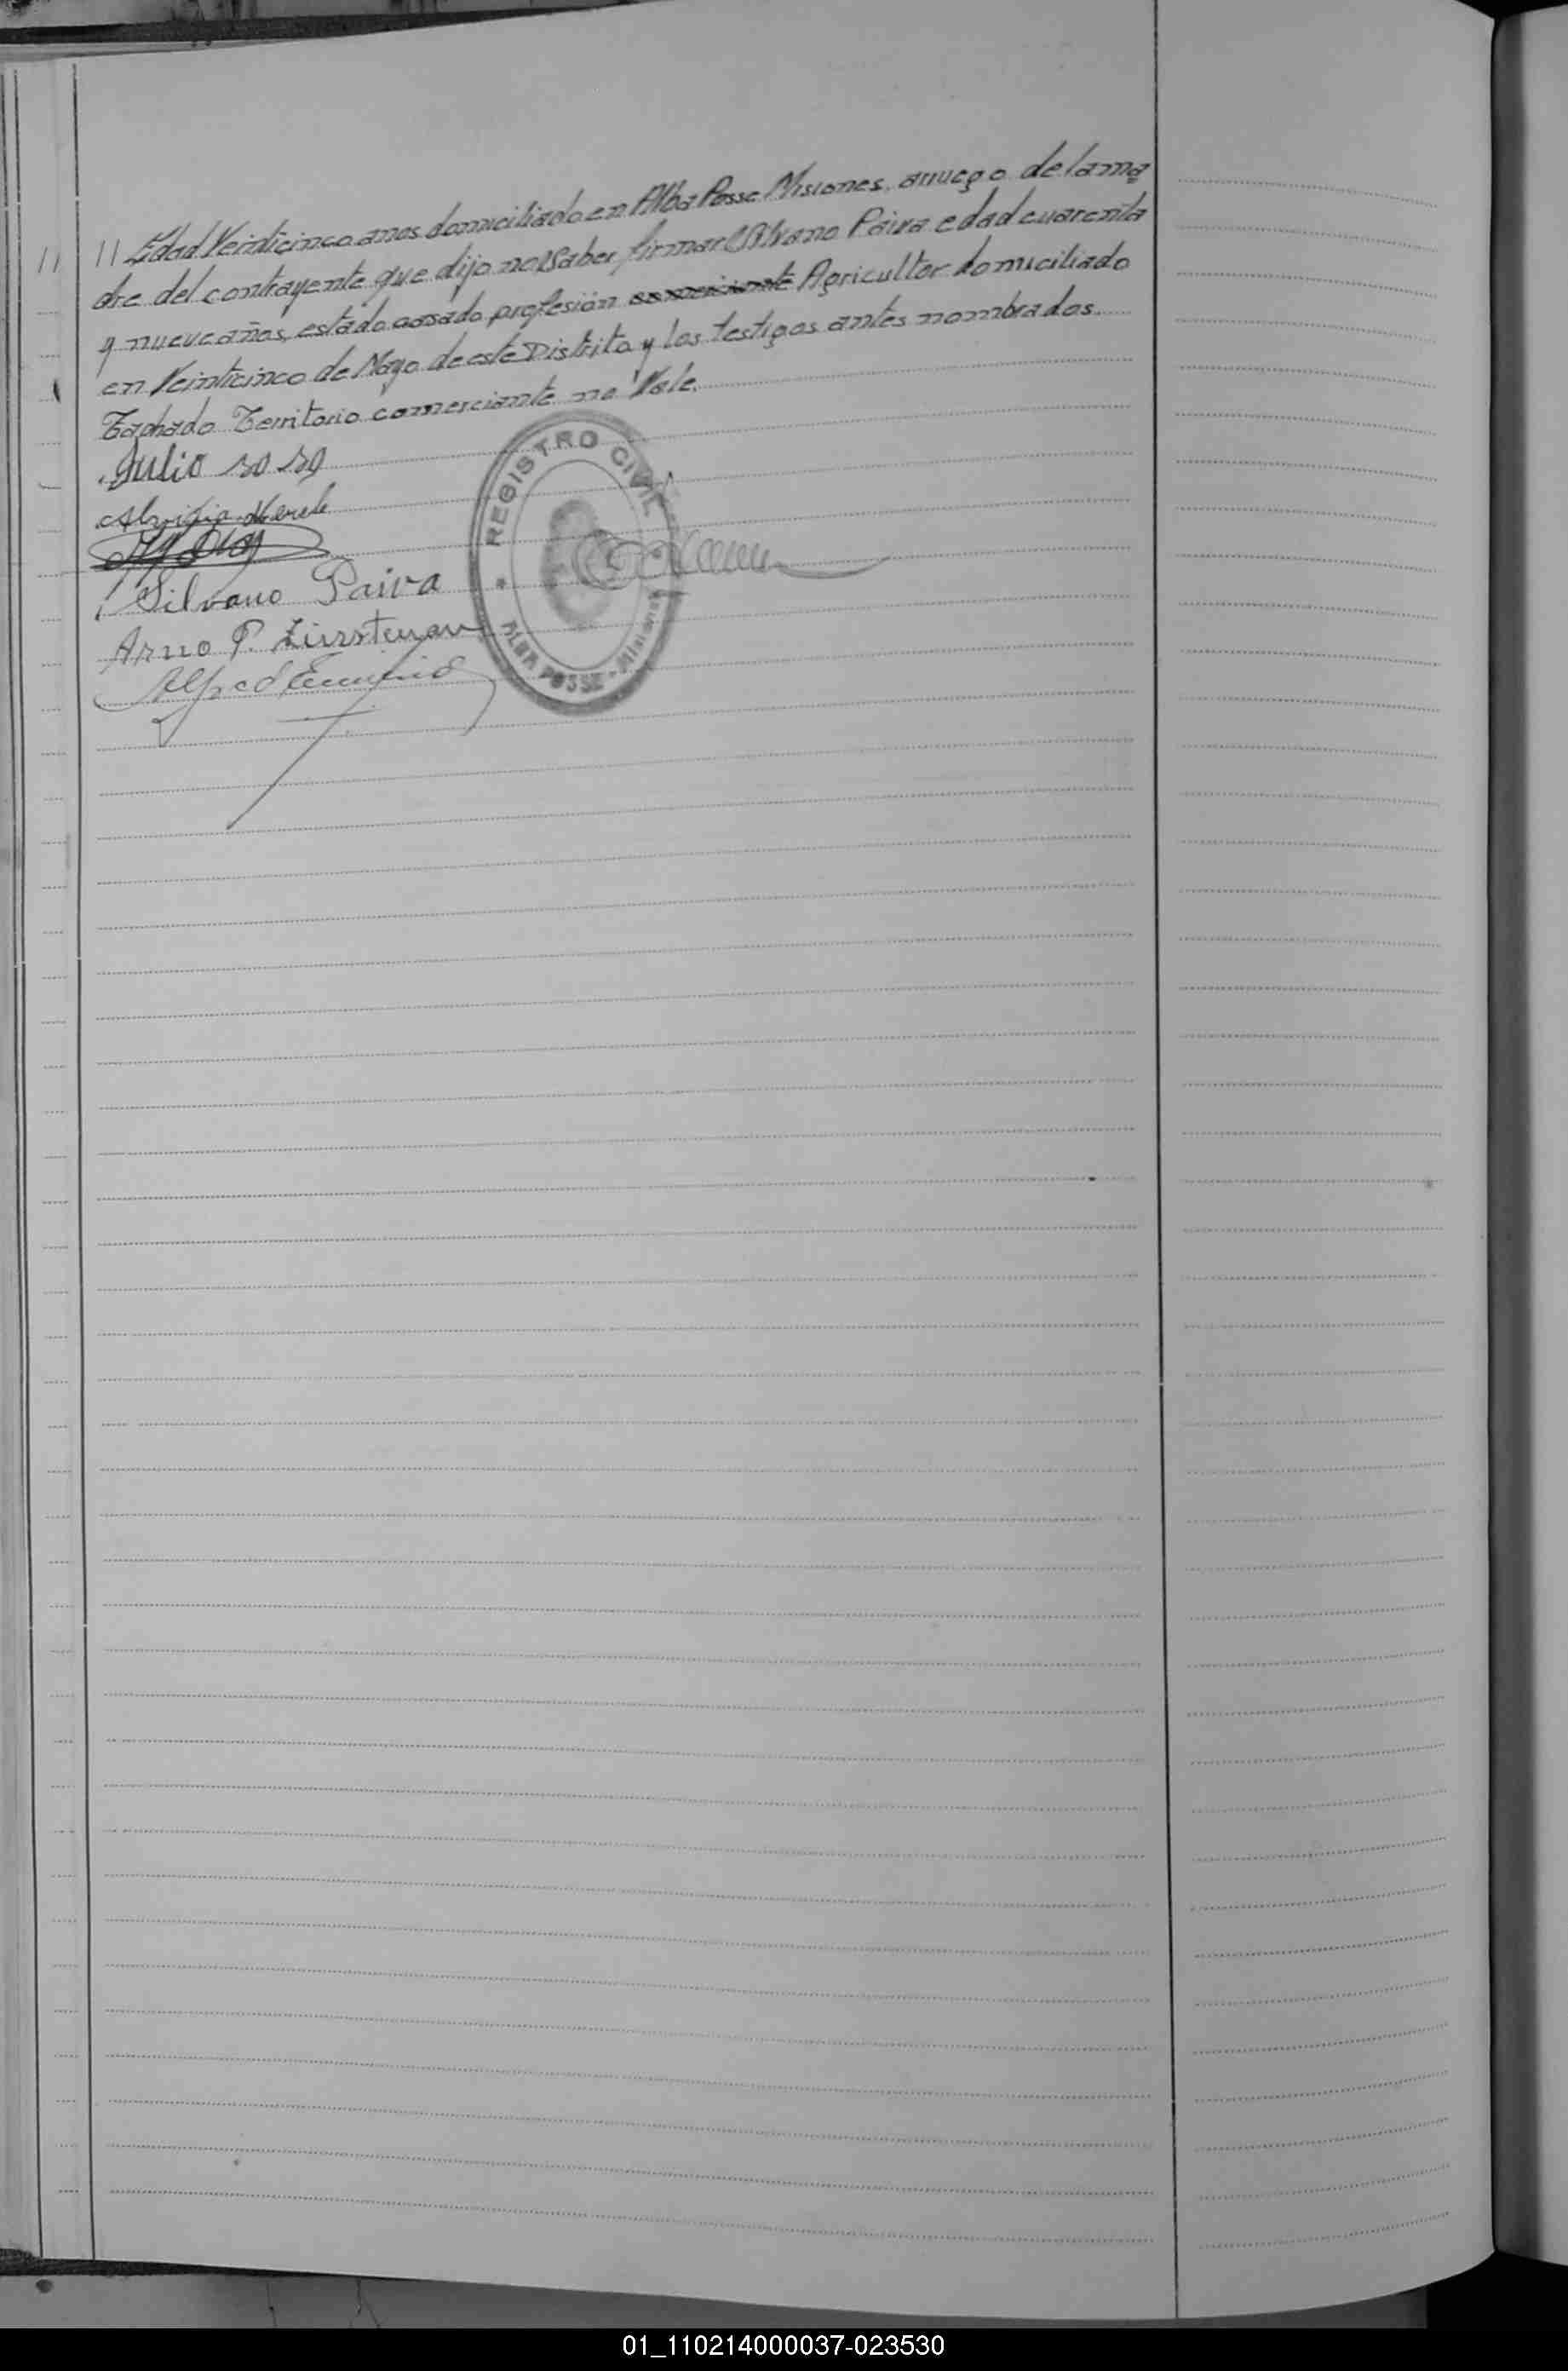 // // Edad Veinticinco anos domiciliado en Alba Posse Misiones. a ruego de la ma
dre del contrayente que dijo no Saber firmar Silvano Paiva edad cuarenta
y nueve años, estado casado profesión comerciante Agricultor domiciliado
en Veinticinco de Mayo de este Distrito y los testigos antes nombrados.
Tachado Territorio comerciante no Vale.
Julio
Silvano Paiva
Arno P.
REGISTRO CIVIL
ALBA POSSE - Misiones
01_110214000037-023530